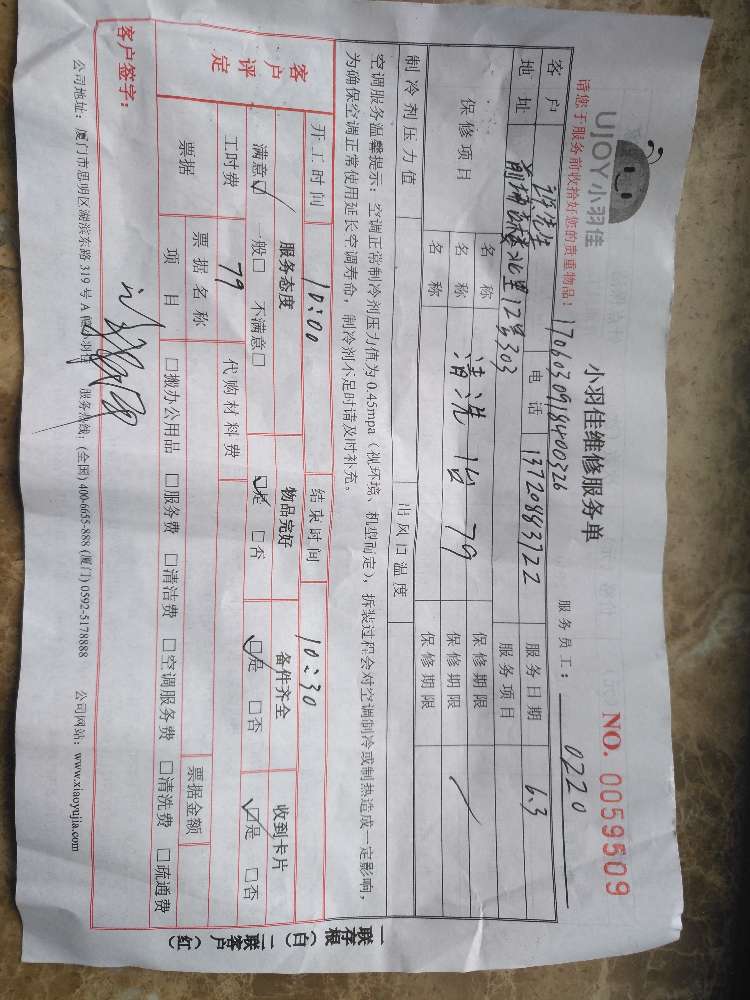 UJOY小羽佳
小羽佳维修服务单
NO. 0059509
请您于服务前收拾好您的贵重物品!
1706030918400326
服务员工: 0220
客户
电话 13720883722
服务日期 6.3
地址
12号303
服务项目
保修项目
名称
保修期限
名称 清洗 79
保修期限
名称
保修期限
制冷剂压力值
出风口温度
空调服务温馨提示: 空调正常制冷剂压力值为0.45mpa(视环境、机型而定), 拆装过程会对空调制冷或制热造成一定影响,
为确保空调正常使用延长空调寿命, 制冷剂不足时请及时补充。
开工时间 10:00 结束时间 10:30
客户评定
服务态度 物品完好 备件齐全 收到卡片
满意☑ 一般□ 不满意□ ☑是 □否 ☑是 □否 ☑是 □否
工时费 79 代购材料费
票据
票据名称
票据金额
项目 □搬办公用品 □服务费 □清洁费 □空调服务费 □清洗费 □疏通费
客户签字:
公司地址: 厦门市思明区湖滨东路319号A 服务热线: (全国) 400-6655-888 (厦门) 0592-5178888 公司网站: www.xiaoyujia.com
一联存根(白) 二联客户(红)